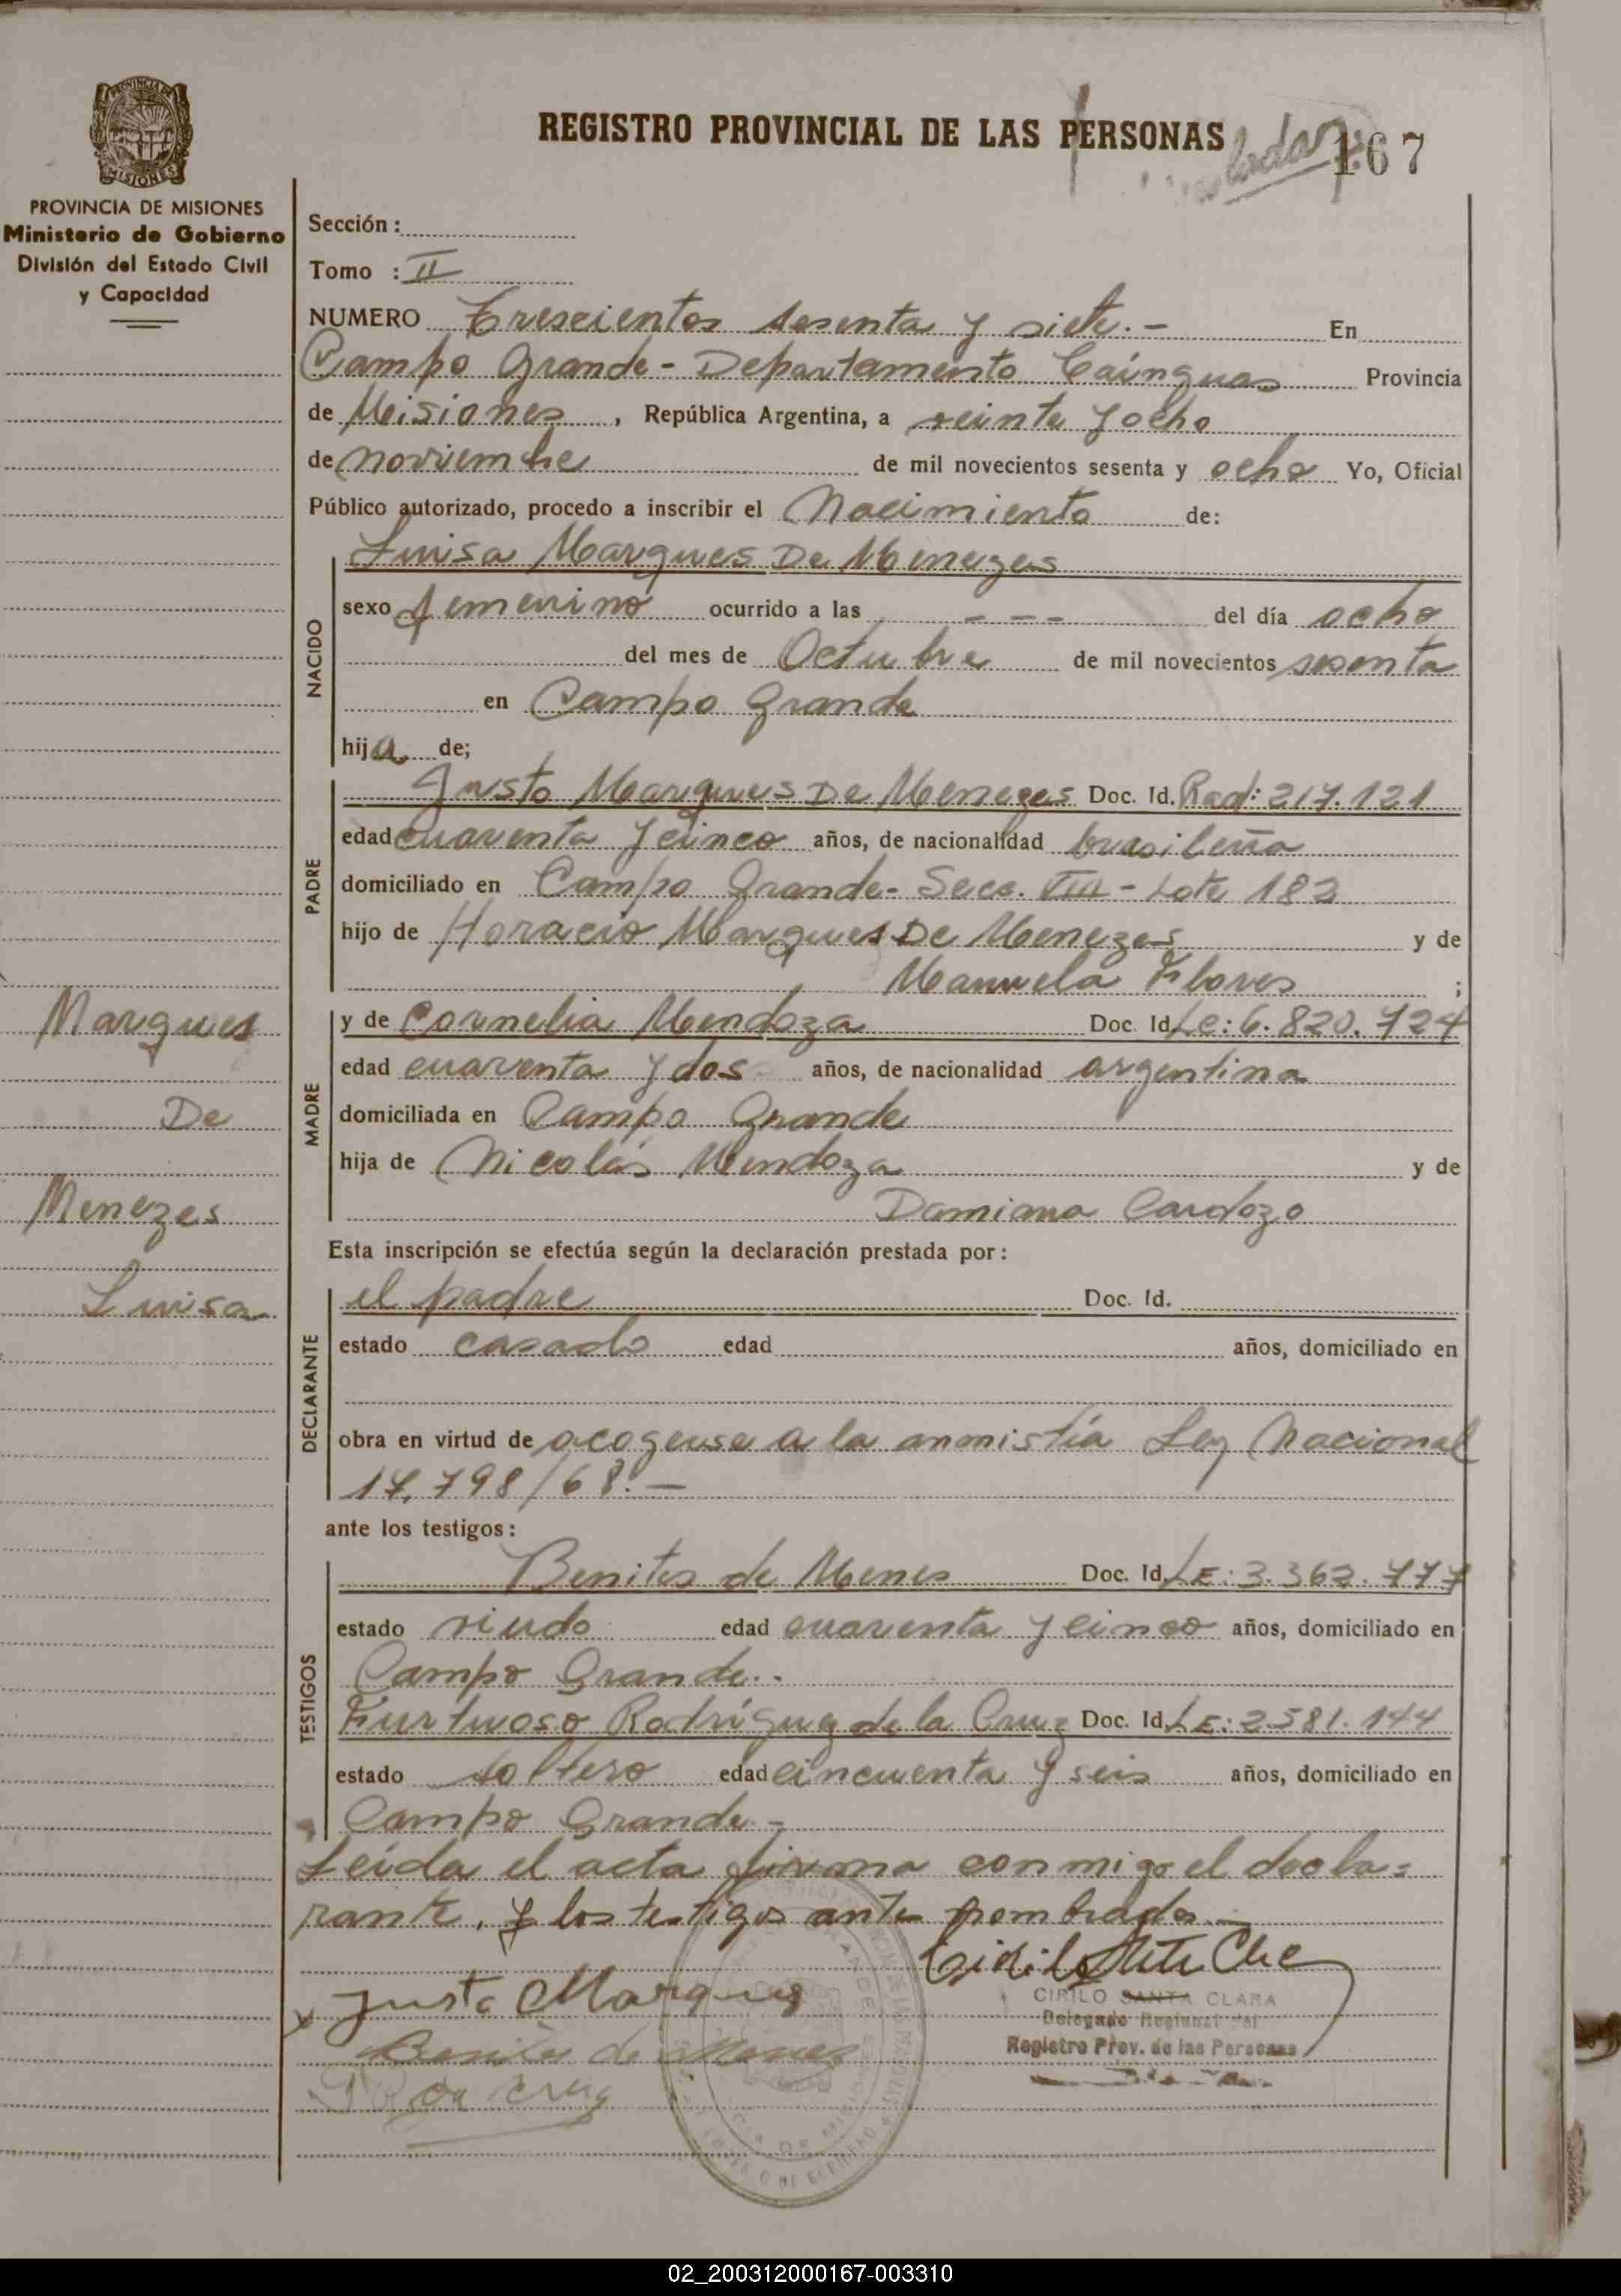 REGISTRO PROVINCIAL DE LAS PERSONAS
167
PROVINCIA DE MISIONES
Ministerio de Gobierno
División del Estado Civil
y Capacidad
Sección :
Tomo : II
NUMERO Trescientos sesenta y siete.- En
Campo Grande - Departamento Cainguas Provincia
de Misiones, República Argentina, a veinte y ocho
de noviembre de mil novecientos sesenta y ocho Yo, Oficial
Público autorizado, procedo a inscribir el Nacimiento de:
Luisa Marques De Menezes
NACIDO
sexo femenino ocurrido a las - - - del día ocho
del mes de Octubre de mil novecientos sesenta
en Campo Grande
hija de;
PADRE
Justo Marques De Menezes Doc. Id. Rad: 217.121
edad cuarenta y cinco años, de nacionalidad brasileña
domiciliado en Campo Grande - Secc. VIII - Lote 182
hijo de Horacio Marques De Menezes y de
Manuela Flores ;
MADRE
y de Cornelia Mendoza Doc. Id Lc: 6.820.724
edad cuarenta y dos años, de nacionalidad argentina
domiciliada en Campo Grande
hija de Nicolás Mendoza y de
Damiana Cardozo
Marques
De
Menezes
Luisa
Esta inscripción se efectúa según la declaración prestada por :
DECLARANTE
el padre Doc. Id.
estado casado edad años, domiciliado en
obra en virtud de acogerse a la amnistía Ley Nacional
17.798/68.-
ante los testigos :
TESTIGOS
Benites de Menes Doc. Id LE: 3.362.777
estado viudo edad cuarenta y cinco años, domiciliado en
Campo Grande.-
Furtuoso Rodríguez de la Cruz Doc. Id LE: 2581.144
estado soltero edad cincuenta y seis años, domiciliado en
Campo Grande -
Leída el acta firman conmigo el decla=
rante, y los testigos ante nombrados.-
Justo Marques
Benites de Menes
de la Cruz
CIRILO SANTA CLARA
Delegado Regional del
Registro Prov. de las Personas
02_200312000167-003310